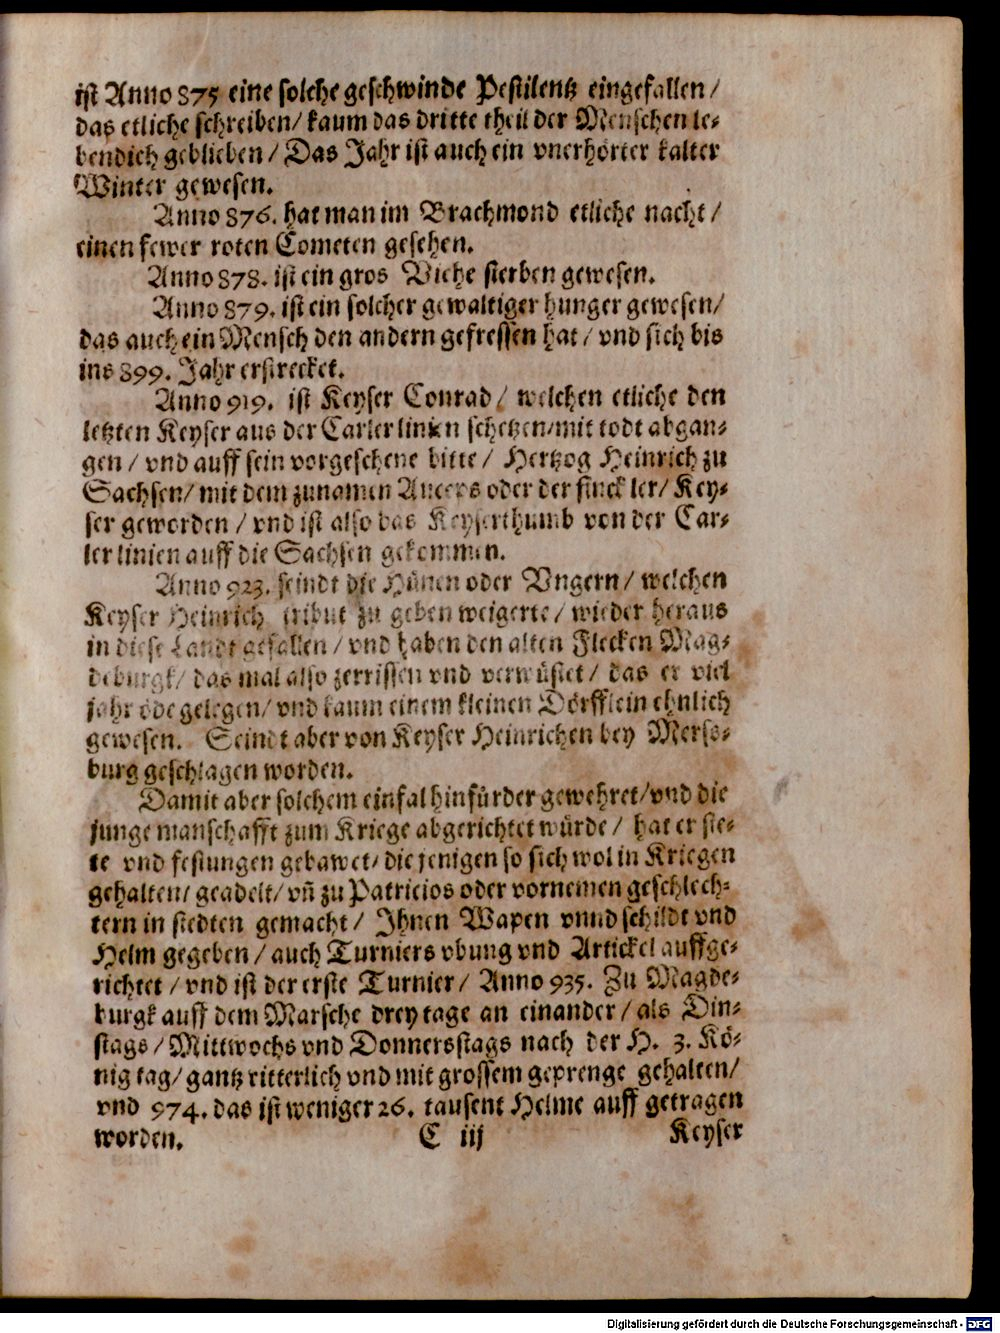 ist Anno 875 eine solche geschwinde Pestilentz eingefallen/
das etliche schreiben/ kaum das dritte theil der Menschen le-
bendich geblieben/ Das Jahr ist auch ein vnerhörter kalter
Winter gewesen.
Anno 876. hat man im Brachmond etliche nacht/
einen fewer roten Cometen gesehen.
Anno 878. ist ein gros Viehe sterben gewesen.
Anno 879. ist ein solcher gewaltiger hunger gewesen/
das auch ein Mensch den andern gefressen hat/ vnd sich bis
ins 899. Jahr erstrecket.
Anno 919. ist Keyser Conrad/ welchen etliche den
letzten Keyser aus der Carler linien schetzen/ mit todt abgan-
gen/ vnd auff sein vorgehene bitte/ Hertzog Heinrich zu
Sachsen/ mit dem zunamen Auceps oder der finckler/ Key-
ser geworden/ vnd ist also das Keyserthumb von der Car-
ler linien auff die Sachsen gekommen.
Anno 923. seindt die Hünen oder Vngern/ welchen
Keyser Heinrich tribut zu geben weigerte/ wieder heraus
in diese Landt gefallen/ vnd haben den alten Flecken Mag-
deburgk/ das mal also zerrissen vnd verwüstet/ das er viel
jahr öde gelegen/ vnd kaum einem kleinen Dörfflein ehnlich
gewesen. Seindt aber von Keyser Heinrichen bey Merse-
burg geschlagen worden.
Damit aber solchem einfal hinfürder gewehret/ vnd die
junge manschafft zum Kriege abgerichtet würde/ hat er ste-
te vnd festungen gebawet/ die jenigen so sich wol in Kriegen
gehalten/ geadelt/ vñ zu Patricios oder vornemen geschlech-
tern in stedten gemacht/ Ihnen Wapen vnnd schildt vnd
Helm gegeben/ auch Turniers vbung vnd Artickel auffge-
richtet/ vnd ist der erste Turnier/ Anno 935. Zu Magde-
burgk auff dem Marsche drey tage an einander/ als Din-
stags/ Mittwochs vnd Donnersstags nach der H. 3. Kö-
nig tag/ gantz ritterlich vnd mit grossem geprenge gehalten/
vnd 974. das ist weniger 26. tausent Helme auff getragen
worden. C iij Keyser
Digitalisierung gefördert durch die Deutsche Forschungsgemeinschaft - DFG